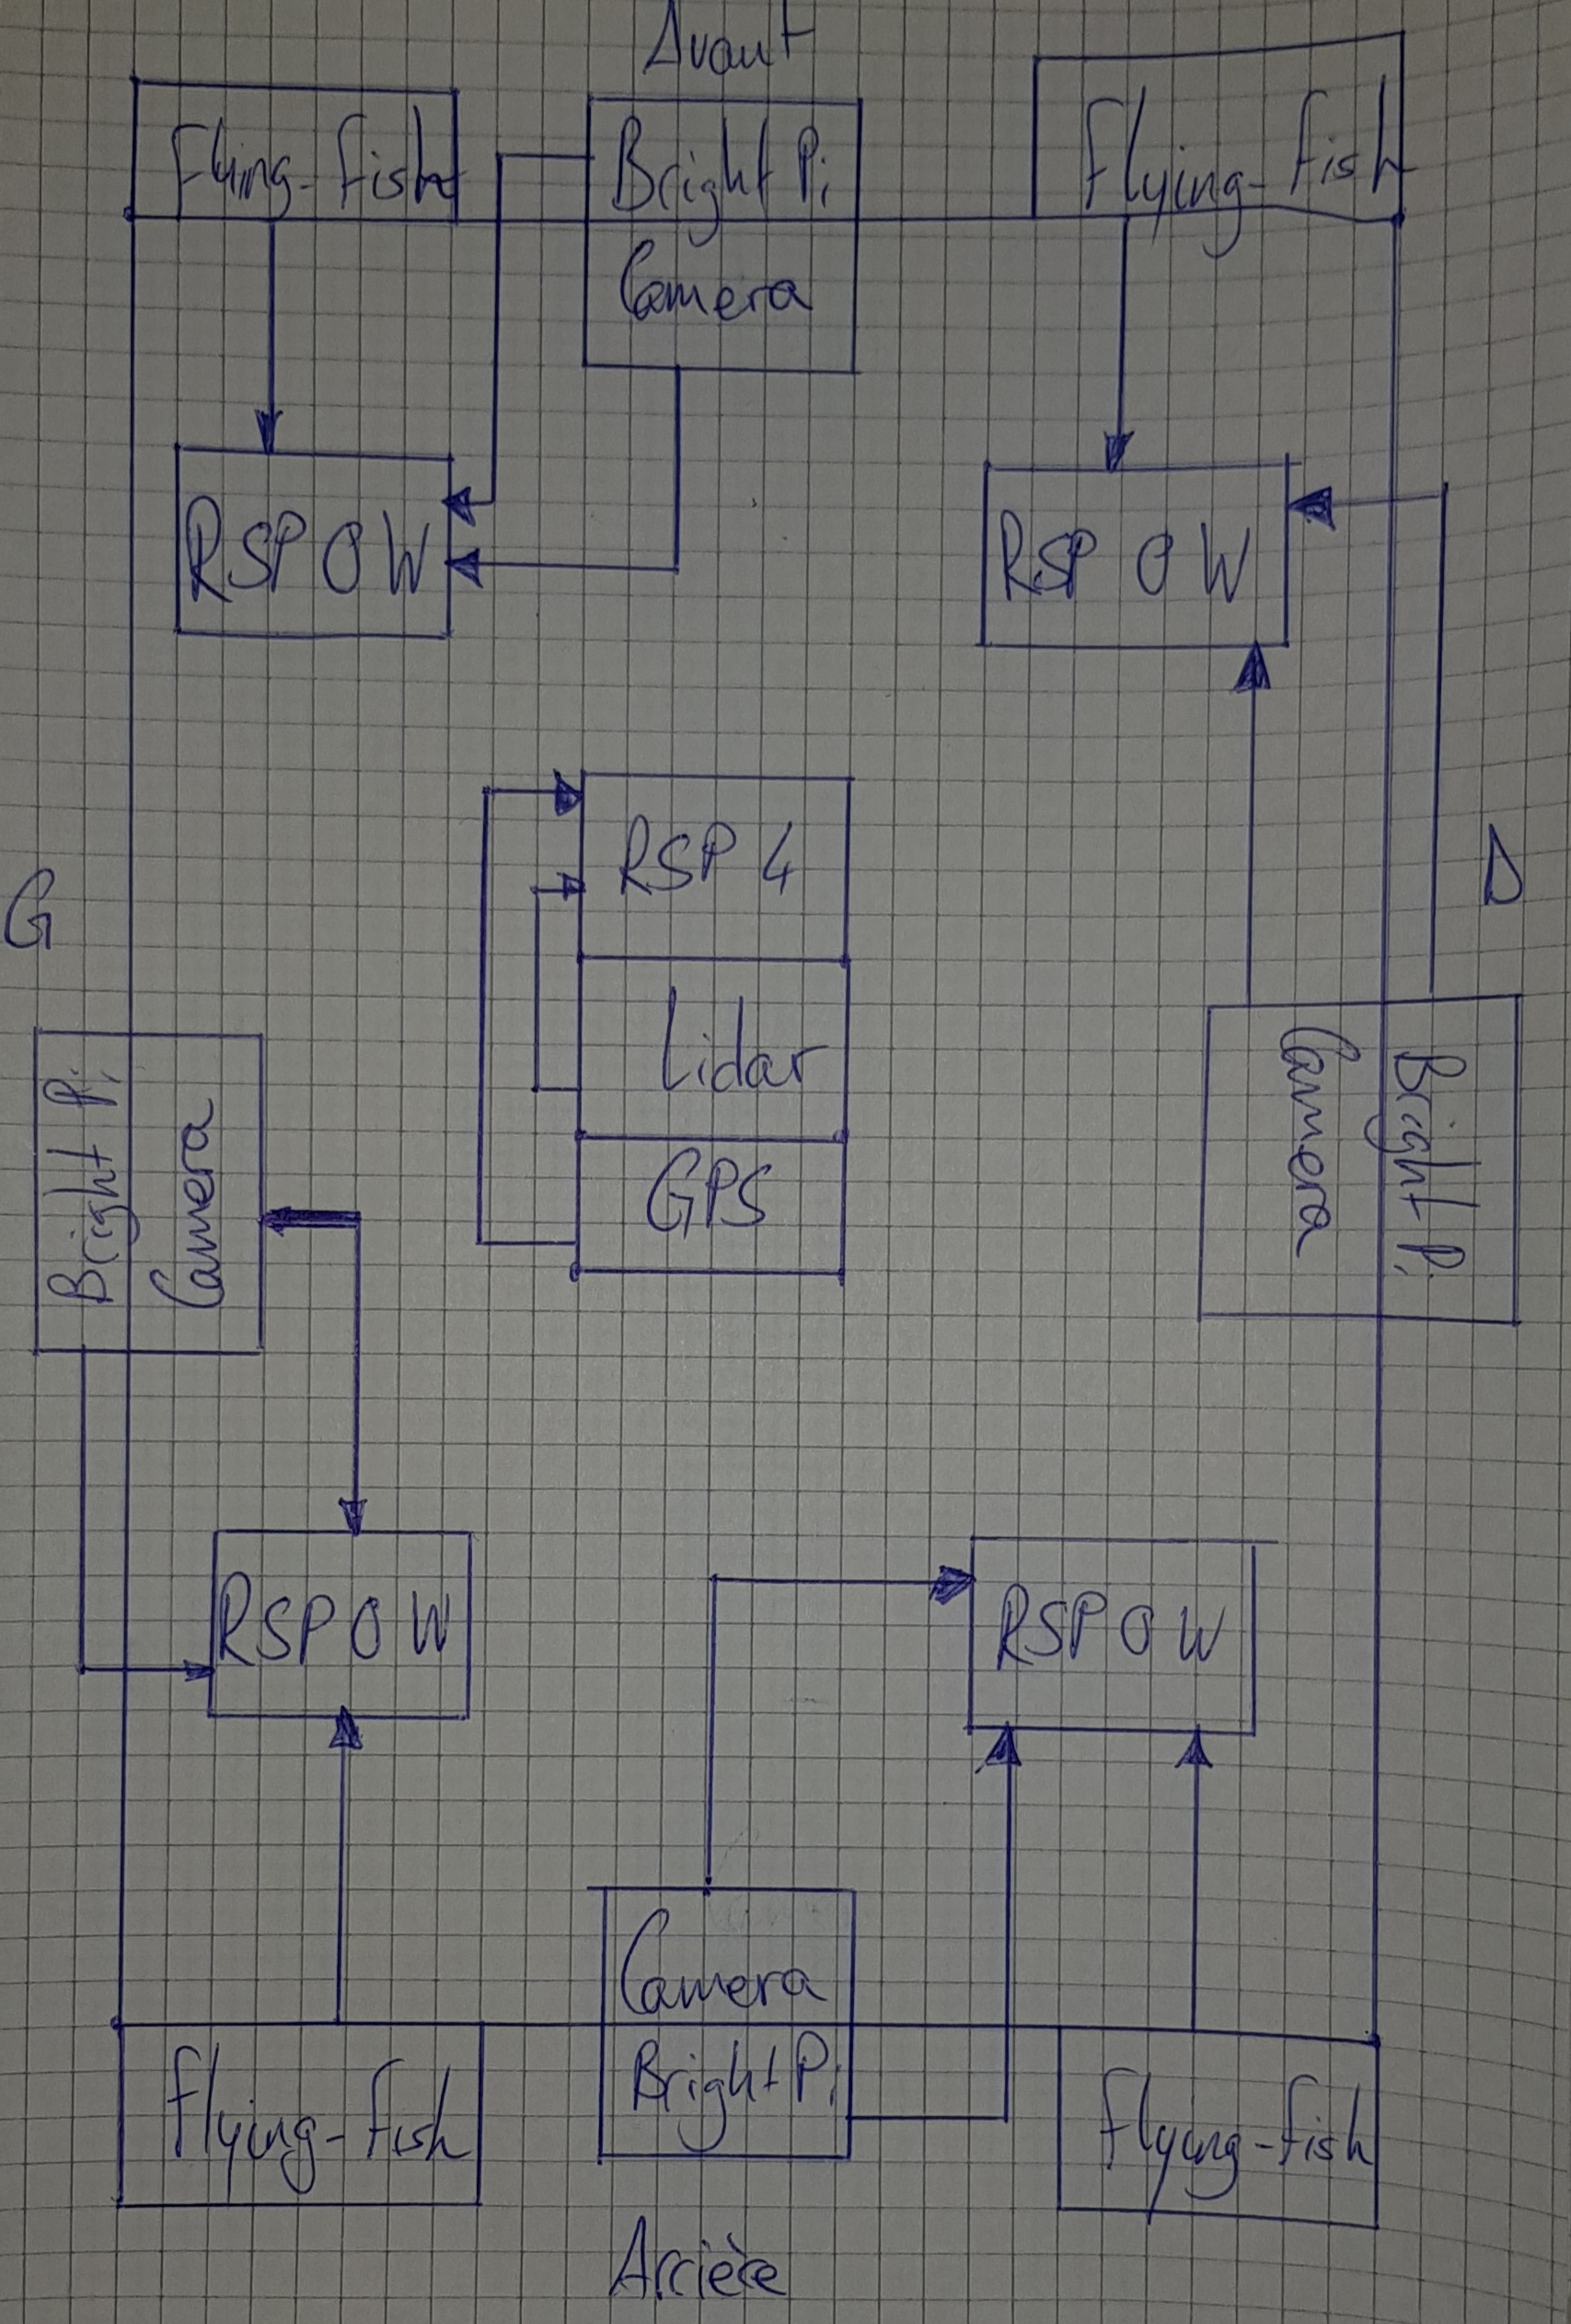 Avant
Flying-fish
Bright Pi
Camera
Flying-fish
RSP 0 W
RSP 0 W
RSP 4
Lidar
GPS
G
D
Bright Pi
Camera
Bright Pi
Camera
RSP 0 W
RSP 0 W
Camera
Bright Pi
Flying-fish
Flying-fish
Arrière